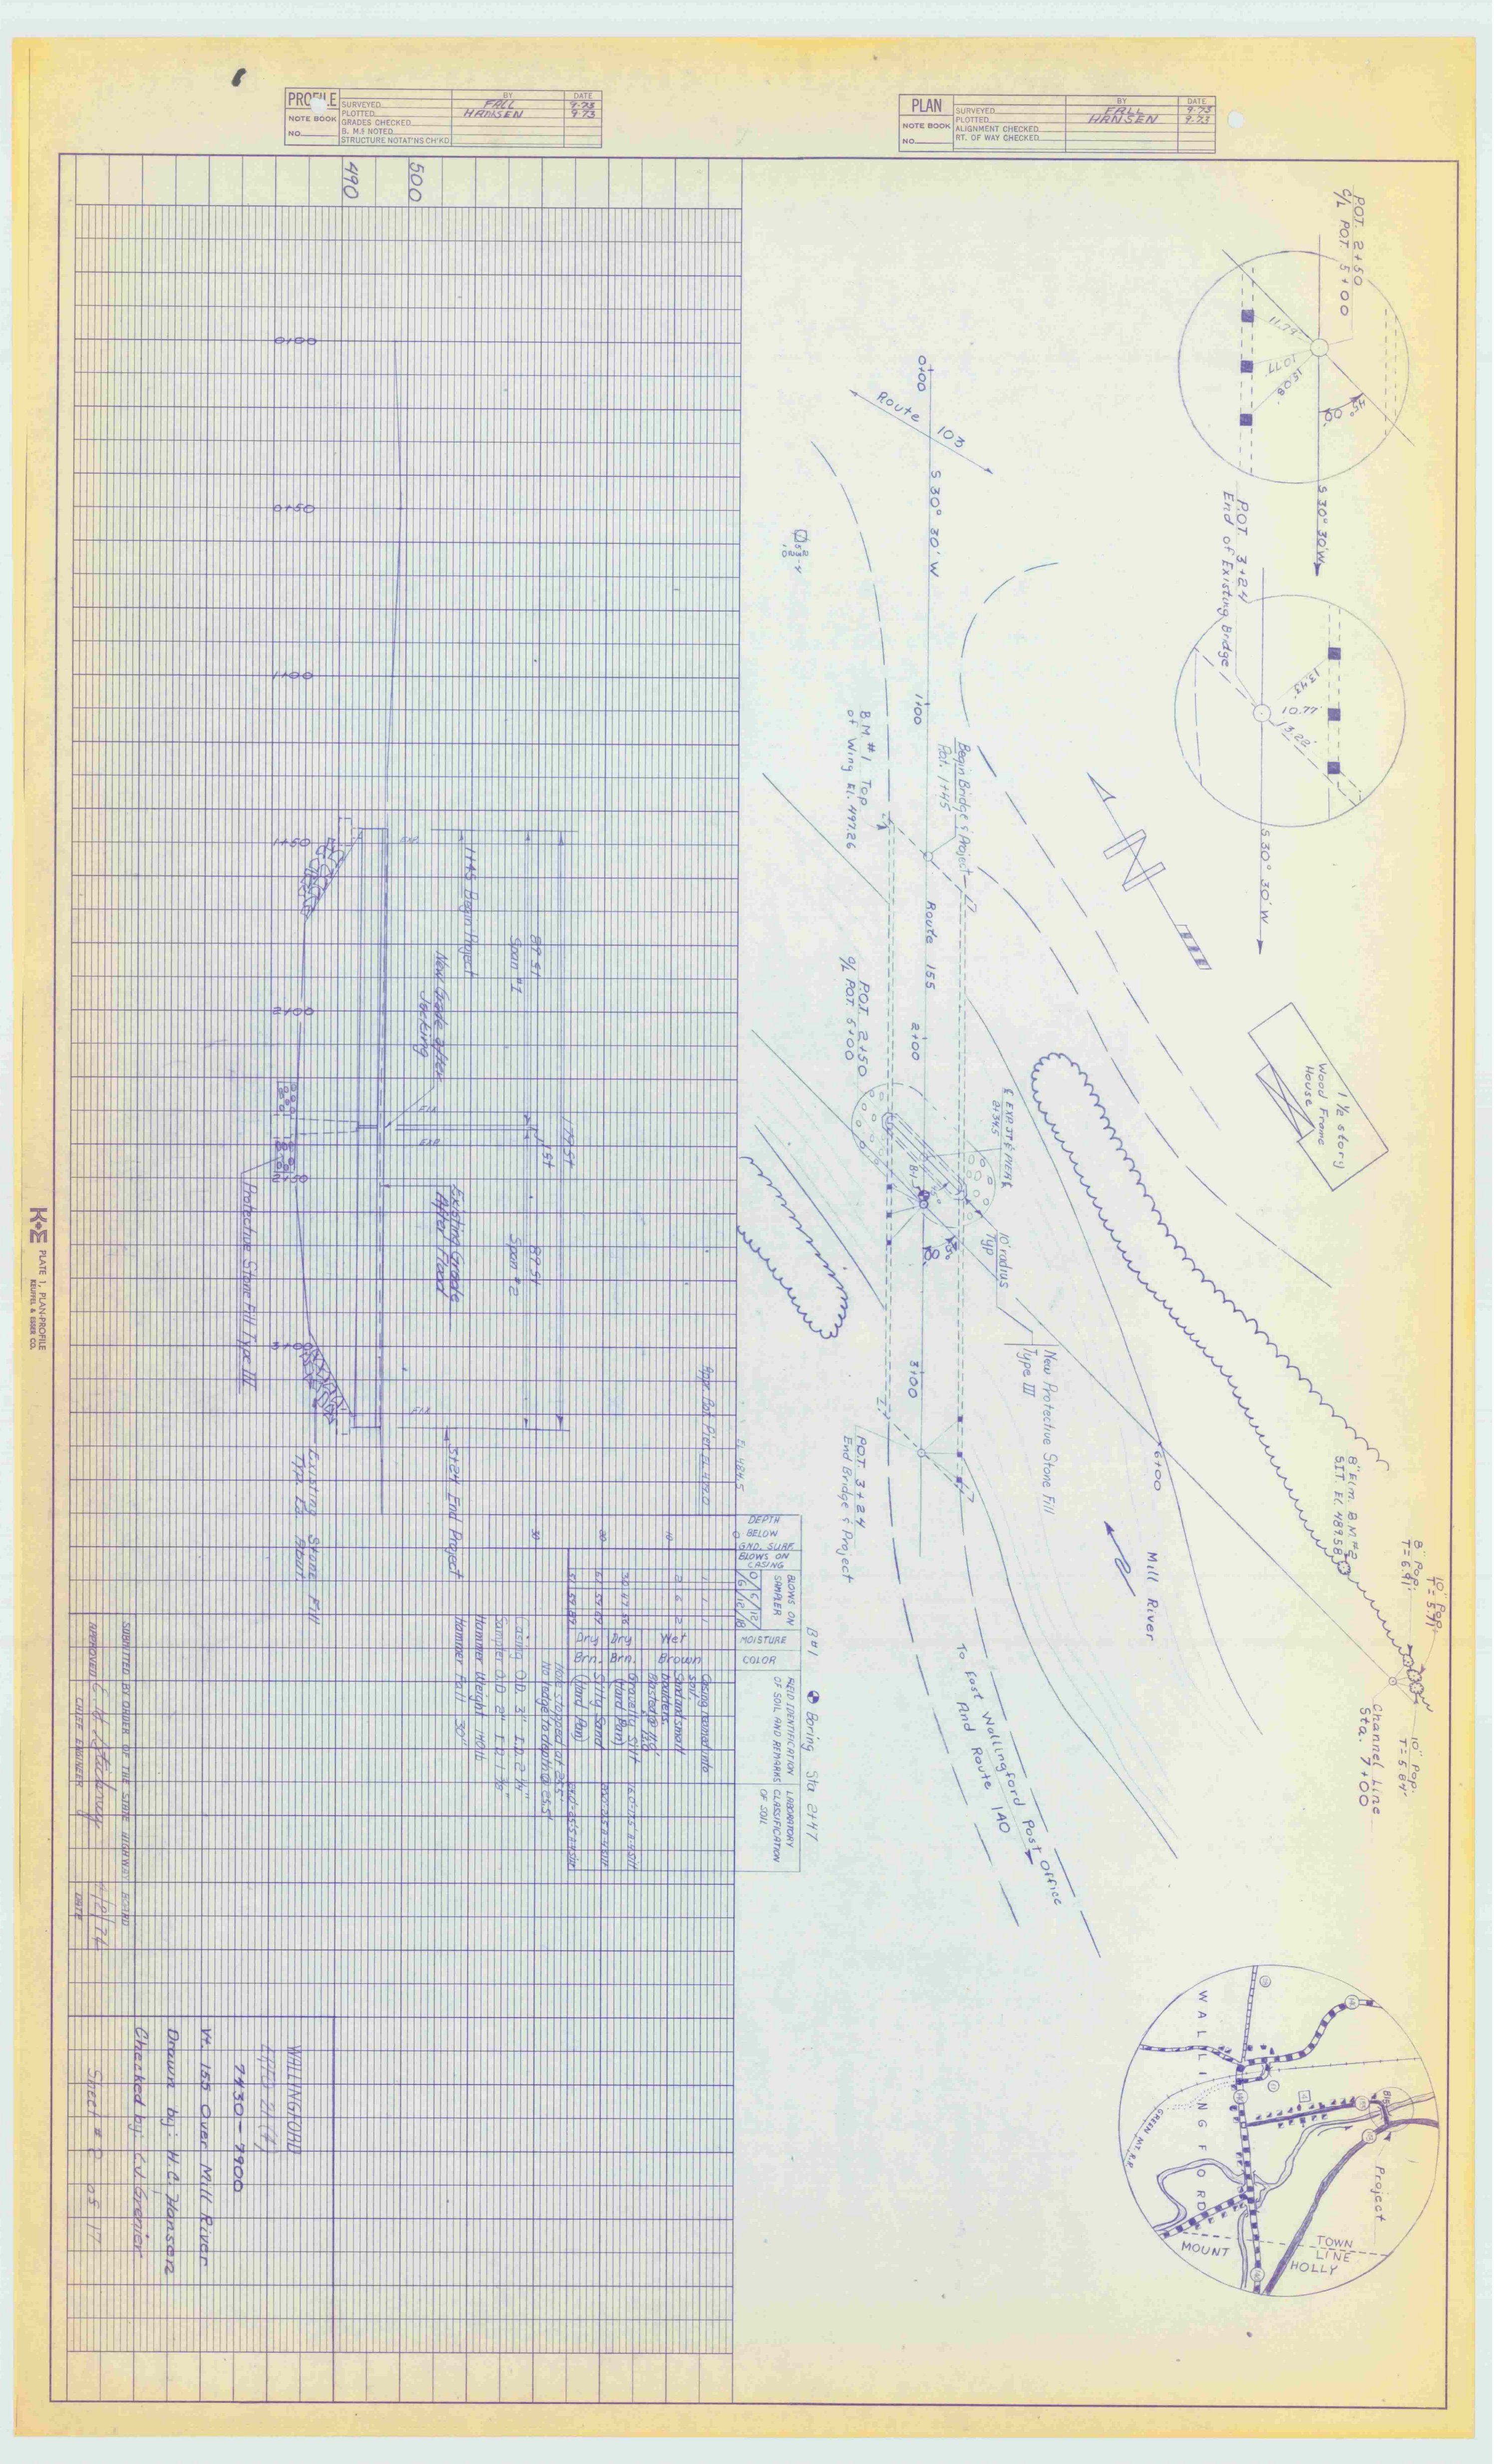 PROFILE
BY
DATE
SURVEYED
FALL
9-73
PLOTTED
HANSEN
9-73
NOTE BOOK
GRADES CHECKED
B. M.S NOTED
NO.
STRUCTURE NOTAT'NS CH'KD
PLAN
BY
DATE
SURVEYED
FALL
9-73
PLOTTED
HANSEN
9-73
NOTE BOOK
ALIGNMENT CHECKED
NO.
RT. OF WAY CHECKED
POT. 2+50
C/L POT. 5+00
11.79'
10.77'
15.08'
45° 00'
S 30° 30' W
POT. 3+24
End of Existing Bridge
13.43'
10.77'
13.22'
S 30° 30' W
1 1/2 story
Wood Frame
House
0+00
Route 103
S 30° 30' W
1+00
B.M. #1 Top
of Wing El. 497.26
Begin Bridge & Project
Pot. 1+45
Route 155
2+00
P.O.T. 2+50
C/L POT. 5+00
10' radius
Typ
New Protective Stone Fill
Type III
3+00
P.O.T. 3+24
End Bridge & Project
6+00
Mill River
To East Wallingford Post Office
And Route 140
8" Elm B.M #2
8" Pop.
10" Pop.
T= 5.71'
10" Pop.
T= 5.84'
Channel Line
Sta. 7+00
WALLINGFORD
GREEN MT. R.P.
Project
TOWN
LINE
MOUNT
HOLLY
500
490
0+00
0+50
1+00
1+50
2+00
2+50
3+00
EXP.
1+45 Begin Project
87.51
Span #1
New Grade after
Jacking
FIX
EXP.
Existing Grade
After Flood
87.51
Span #2
FIX
3+24 End Project
Protective Stone Fill Type III
Existing Stone Fill
B#1
Boring Sta 2+47
El. 484.5
DEPTH
BELOW
GND. SURF.
BLOWS ON
CASING
BLOWS ON
SAMPLER
0/6/12/
/6/12/18
MOISTURE
COLOR
FIELD IDENTIFICATION
OF SOIL AND REMARKS
LABORATORY
CLASSIFICATION
OF SOIL
0
10
20
30
Wet
Brown
Sand and small
boulders.
Dry
Brn.
Gravelly Silt
(Hard Pan)
Dry
Brn.
Silty Sand
(Hard Pan)
Hole stopped at 25.5'
Casing O.D. 3" I.D. 2 1/4"
Sampler O.D. 2" I.D. 1 3/8"
Hammer Fall 30"
SUBMITTED BY ORDER OF THE STATE HIGHWAY BOARD
APPROVED
CHIEF ENGINEER
DATE
WALLINGFORD
7430-7900
Vt. 155 Over Mill River
Drawn by: H.C. Hansen
Checked by: L.V. Grenier
Sheet # 2 of 17
K+E PLATE 1, PLAN-PROFILE
KEUFFEL & ESSER CO.